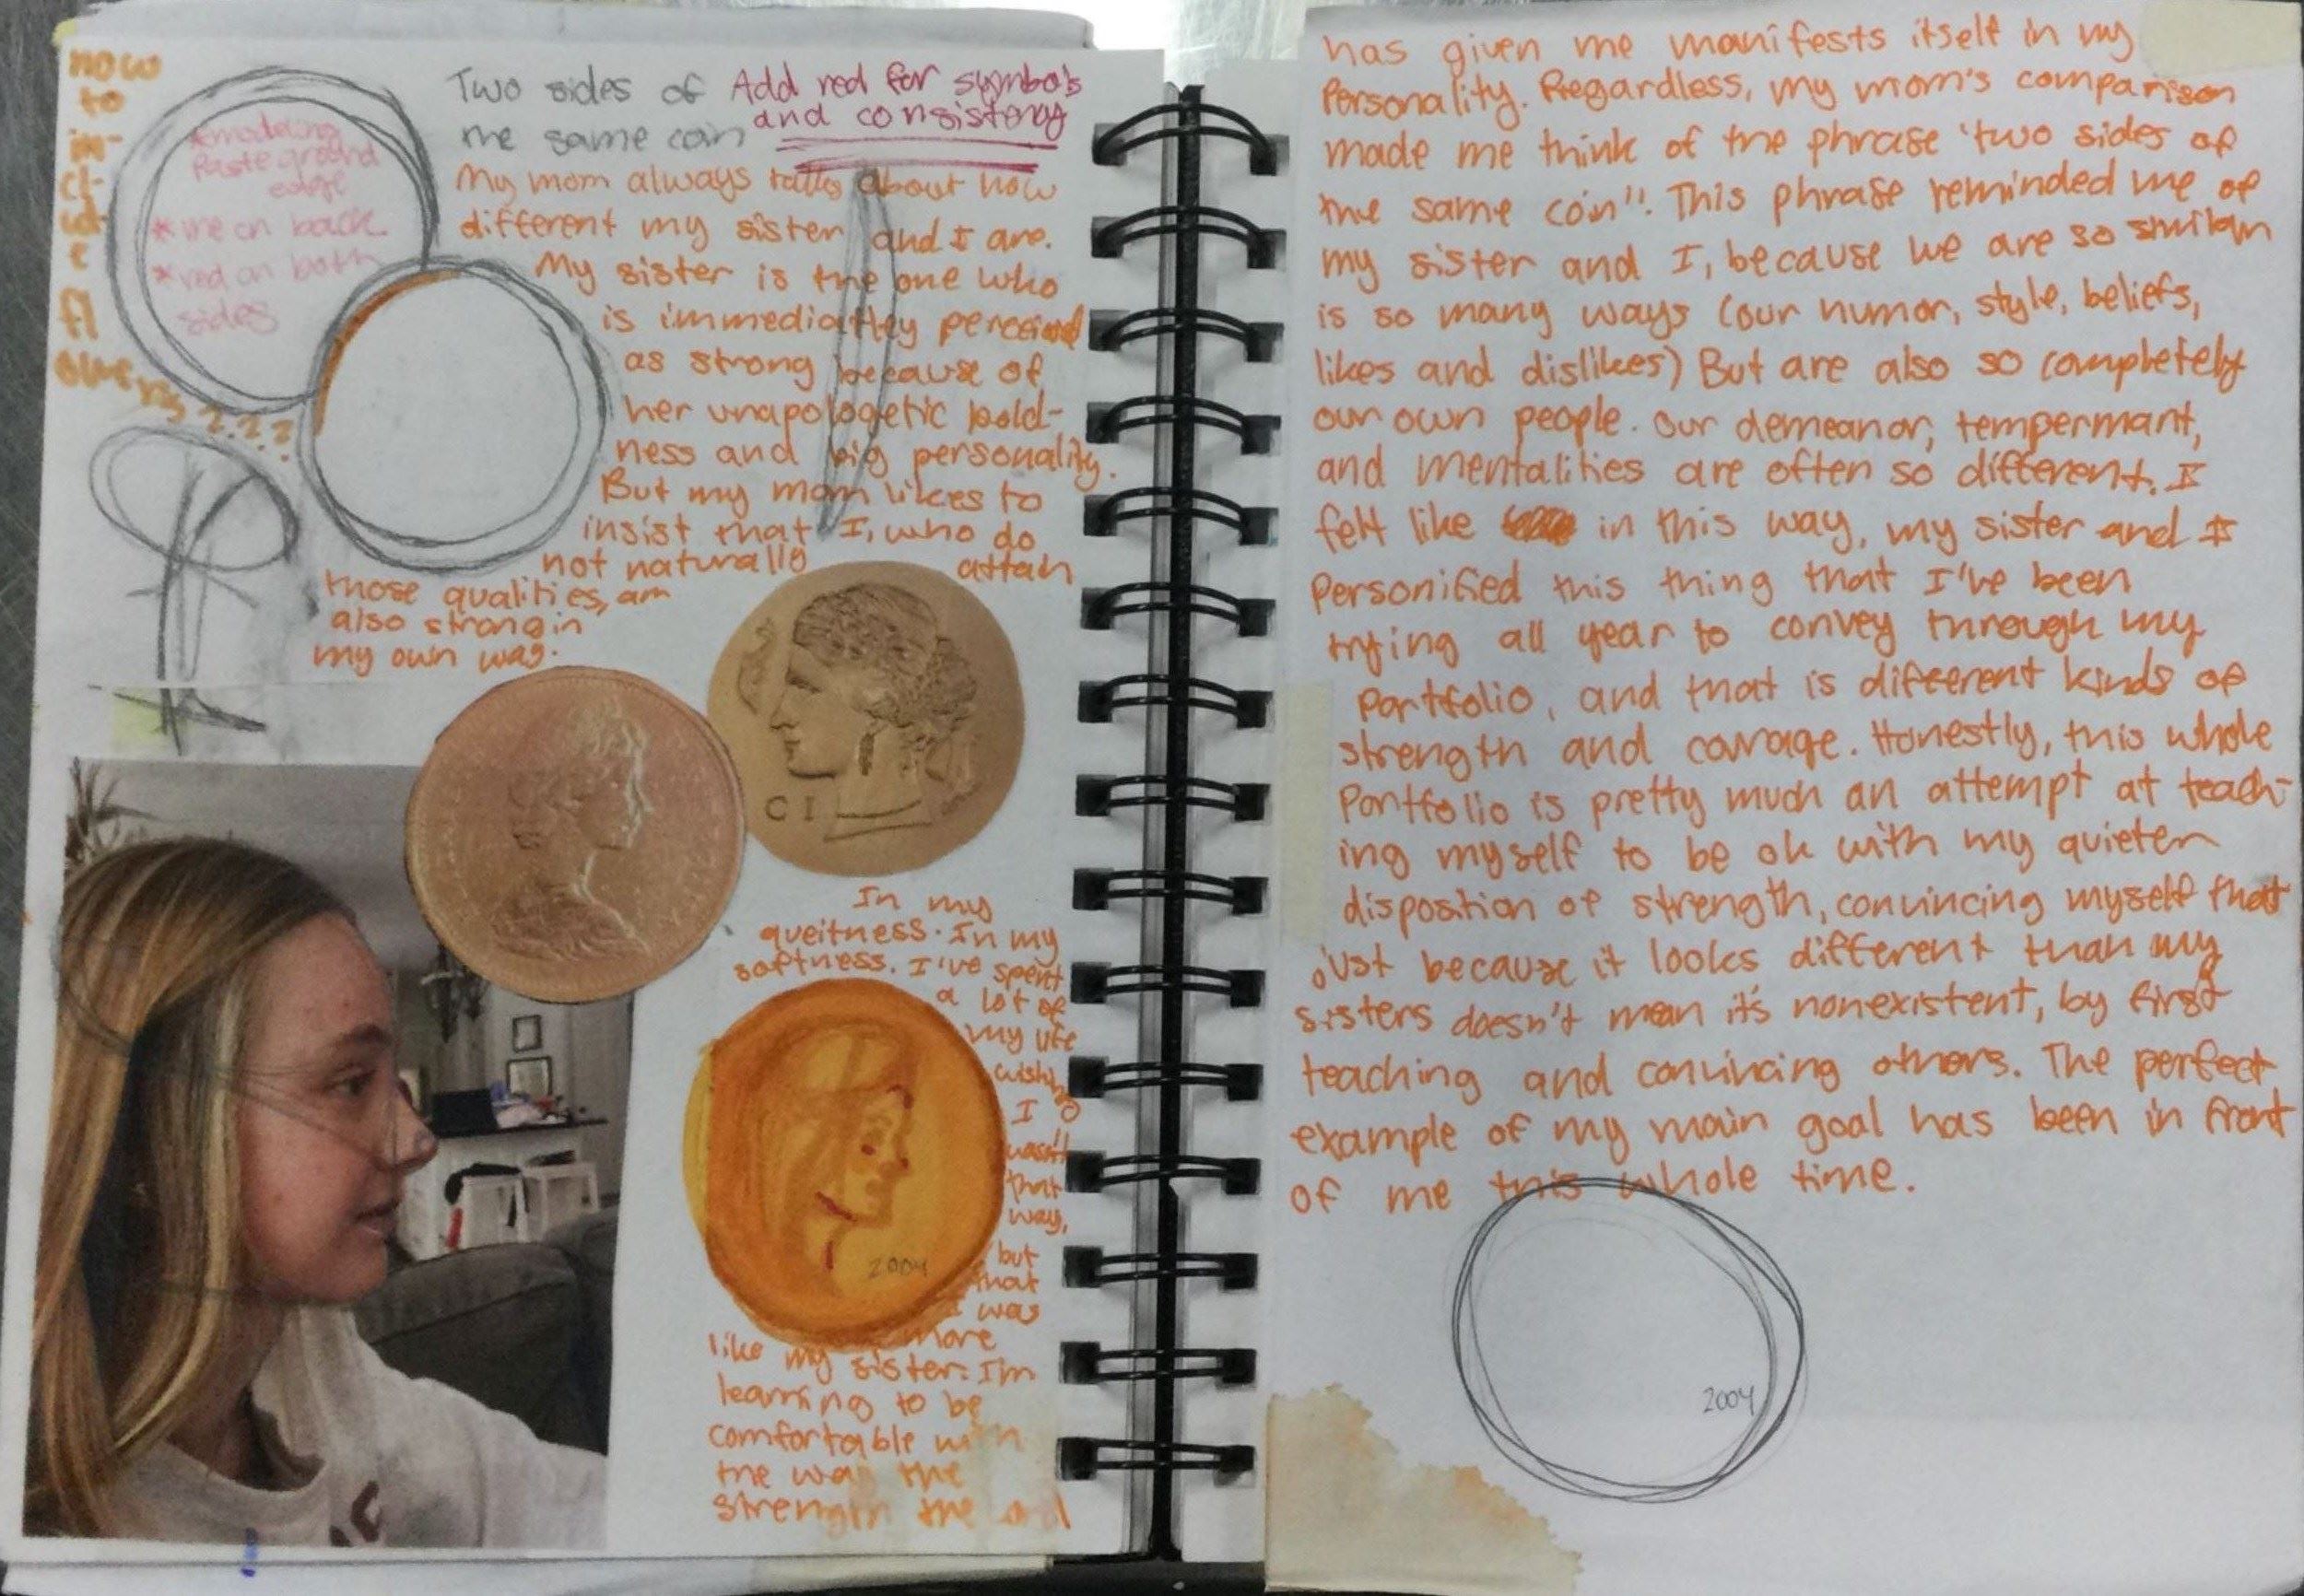 now
to
in-
cl-
ud
e
fl
owers???
*modeling
Paste ground
edge
*me on back
*red on both
sides
Two sides of
the same coin
Add red for symbols
and consistency
My mom always talks about how
different my sister and I are.
My sister is the one who
is immediatley perceived
as strong because of
her unapologetic bold-
ness and big personality.
But my mom likes to
insist that I, who do
not naturally attain
those qualities, am
also strong in
my own way.
CI
In my
queitness. In my
softness. I've spent
a lot of
my life
wishing
I
wasn't
that
way,
but
that
I was
more
like my sister. I'm
learning to be
comfortable with
the way the
strength the
2004
has given me manifests itself in my
Personality. Regardless, my mom's comparison
made me think of the phrase "two sides of
the same coin". This phrase reminded me of
my sister and I, because we are so similar
is so many ways (our humor, style, beliefs,
likes and dislikes) But are also so completely
our own people. Our demeanor, tempermant,
and mentalities are often so different. I
felt like in this way, my sister and I
Personified this thing that I've been
trying all year to convey through my
Portfolio, and that is different kinds of
strength and courage. Honestly, this whole
Portfolio is pretty much an attempt at teach-
ing myself to be ok with my quieter
disposition of strength, convincing myself that
just because it looks different than my
sisters doesn't mean it's nonexistent, by first
teaching and convincing others. The perfect
example of my main goal has been in front
of me this whole time.
2004